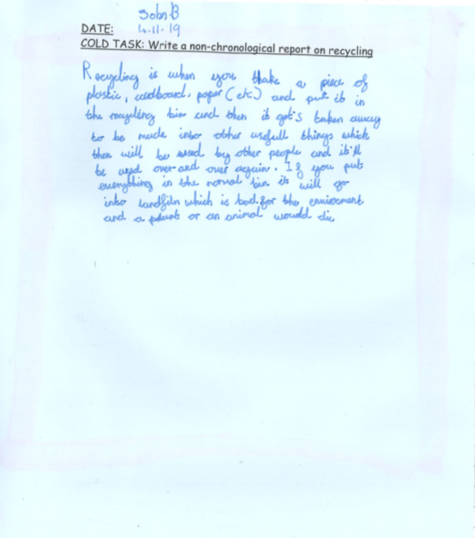 John B
DATE: 4.11.19
COLD TASK: Write a non-chronological report on recycling
Recycling is when you thake a piece of
plastic, cardboard, paper (etc) and put it in
the recycling bin and then it get's taken away
to be made into other usefull things which
then will be used by other people and it'll
be used over and over again. If you put
everything in the normal bin it will go
into landfiln which is bad for the enviorment
and a plant or an animal would die